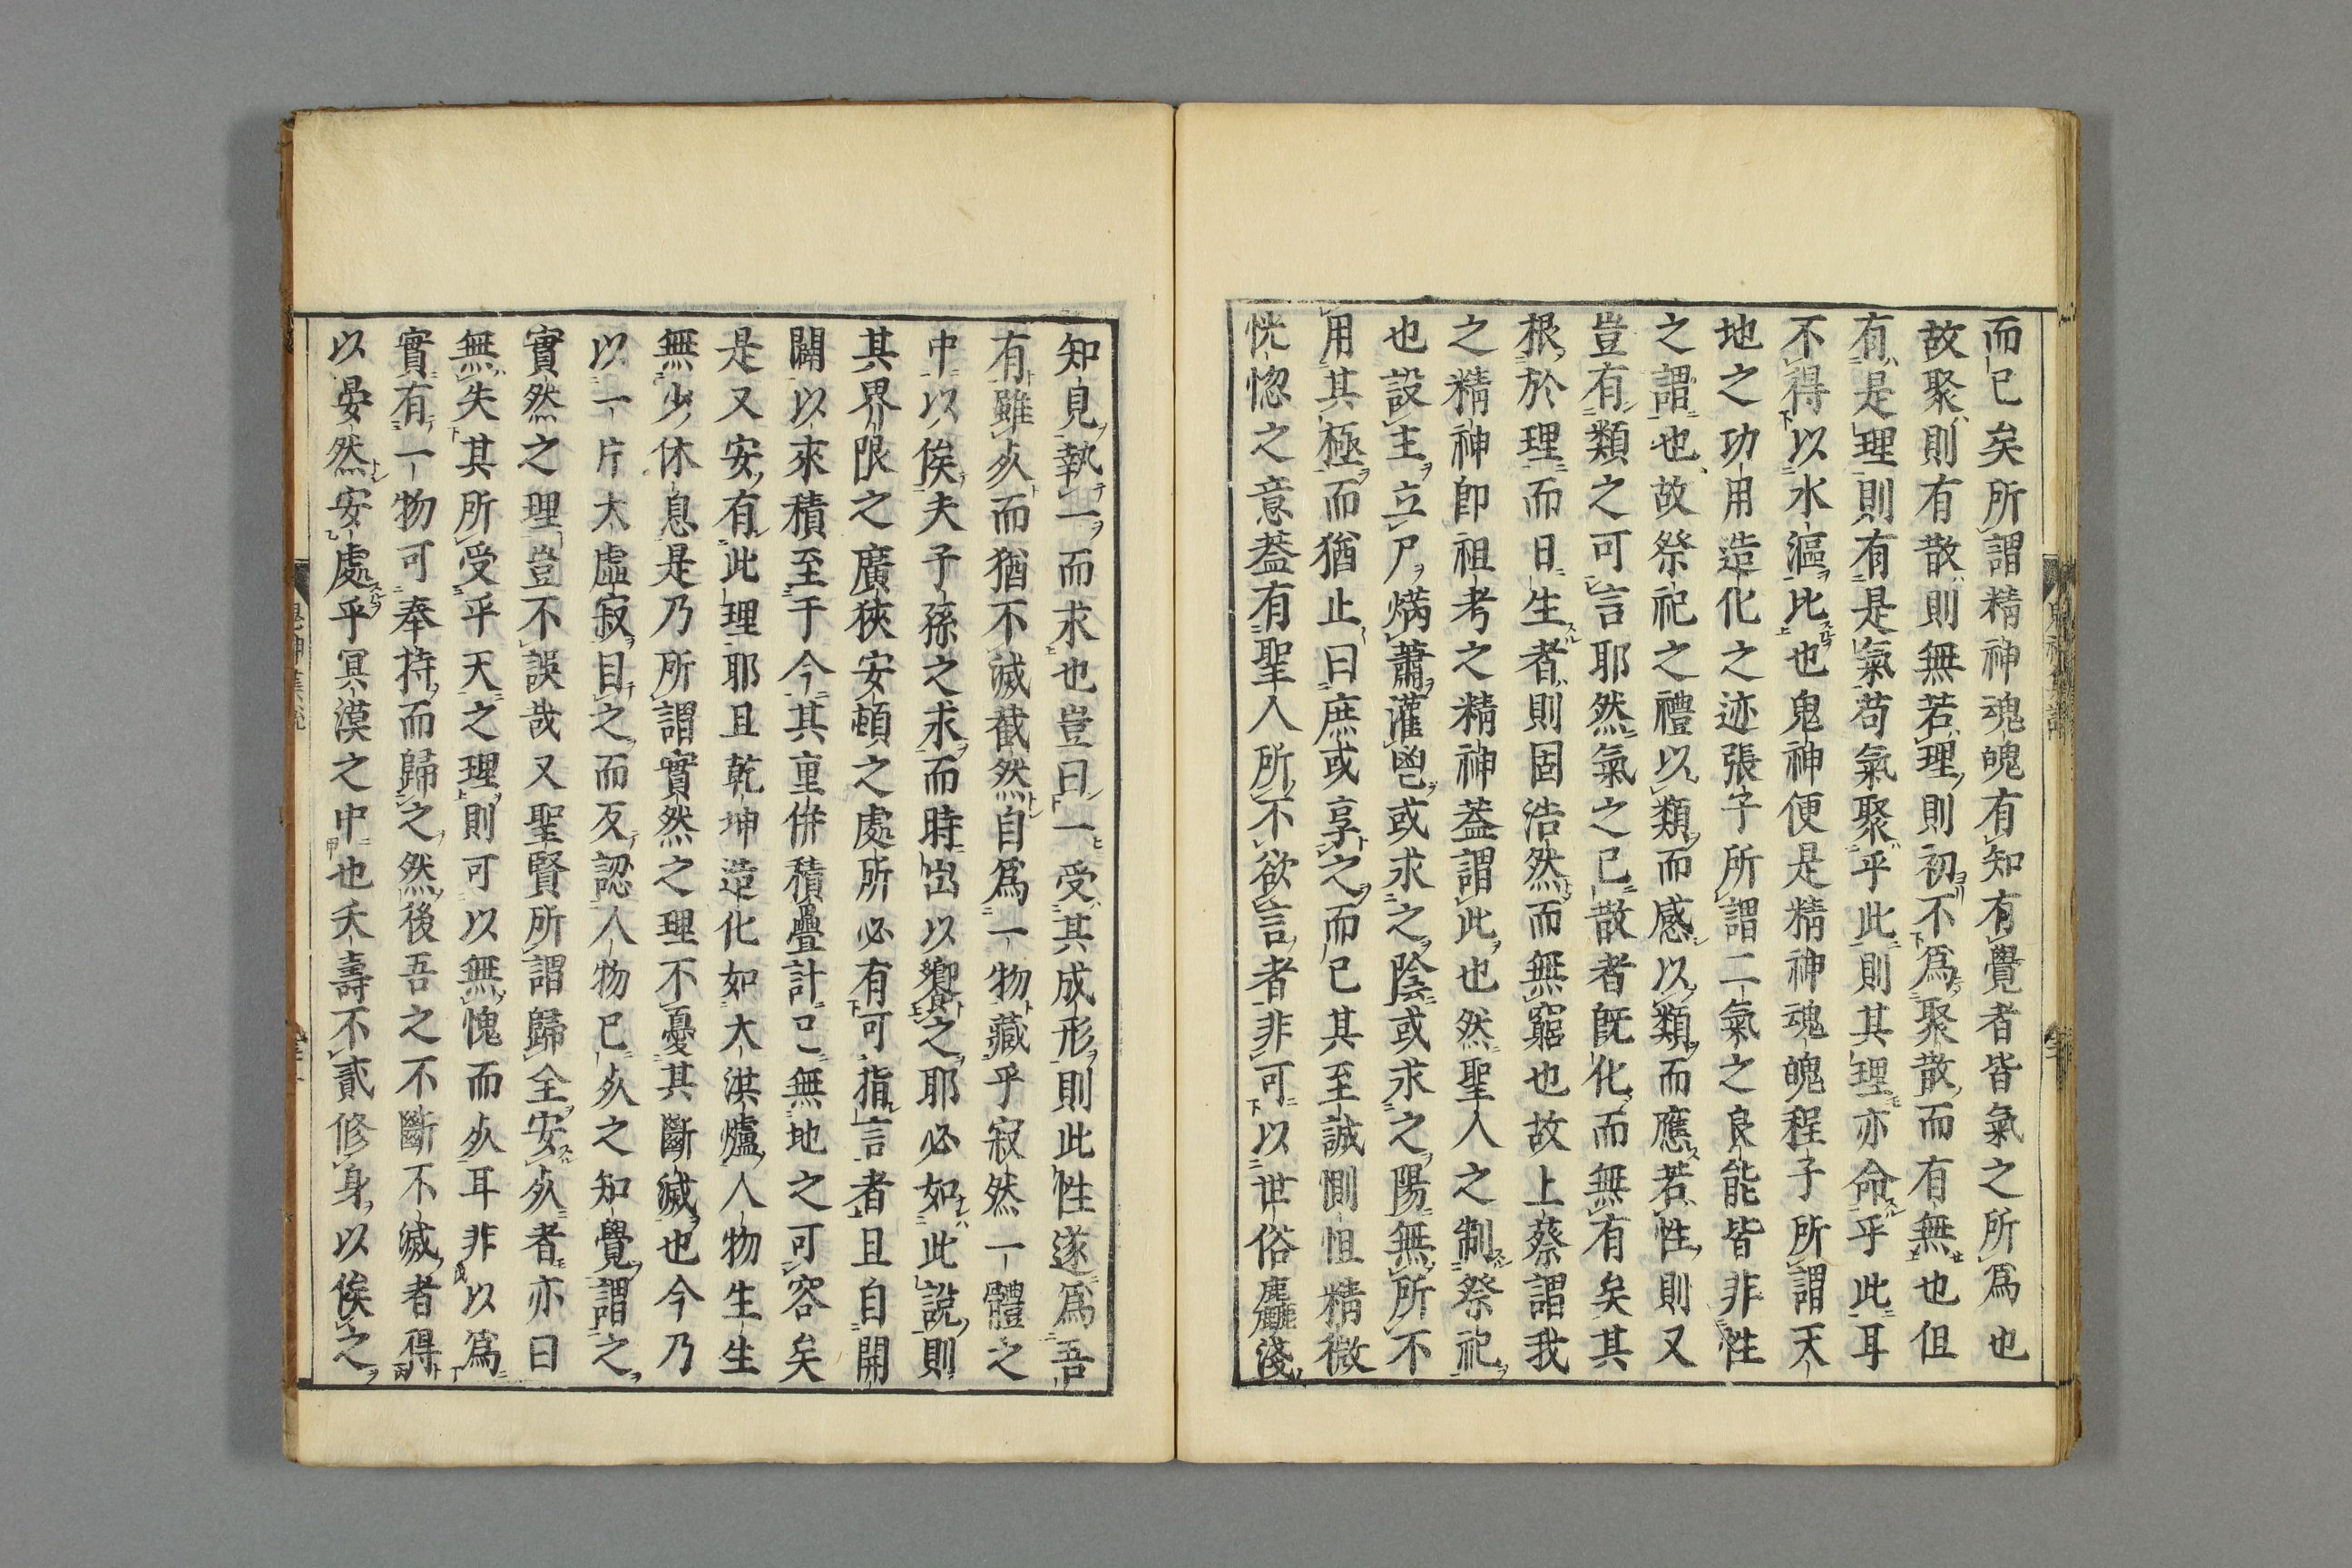 而已矣所謂精神魂魄有知有覺者皆氣之所爲也
故聚則有散則無若理則初不爲聚散而有無也但
有是理則有是氣苟氣聚乎此則其理亦命乎此耳
不得以水漚比也鬼神便是精神魂魄程子所謂天
地之功用造化之迹張子所謂二氣之良能皆非性
之謂也故祭祀之禮以類而感以類而應若性則又
豈有類之可言耶然氣之已散者既化而無有矣其
根於理而日生者則固浩然而無窮也故上蔡謂我
之精神即祖考之精神蓋謂此也然聖人之制祭祀
也設主立尸焫蕭灌鬯或求之陰或求之陽無所不
用其極而猶止曰庶或享之而已其至誠惻怛精微
恍惚之意蓋有聖人所不欲言者非可以世俗麤淺
知見執一而求也豈曰一受其成形則此性遂爲吾
有雖死而猶不滅截然自爲一物藏乎寂然一體之
中以俟夫子孫之求而時出以饗之耶必如此說則
其界限之廣狹安頓之處所必有可指言者且自開
闢以來積至于今其重併積疊計已無地之可容矣
是又安有此理耶且乾坤造化如大洪爐人物生生
無少休息是乃所謂實然之理不憂其斷滅也今乃
以一片大虛寂目之而反認人物已死之知覺謂之
實然之理豈不誤哉又聖賢所謂歸全安死者亦曰
無失其所受乎天之理則可以無愧而死耳非以爲
實有一物可奉持而歸之然後吾之不斷不滅者得
以晏然安處乎冥漠之中也夭壽不貳修身以俟之